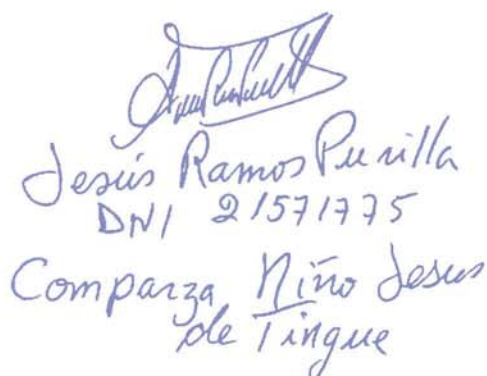 Jesús Ramos Purilla
DNI 21571775
Comparza Niño Jesus
de Tingue